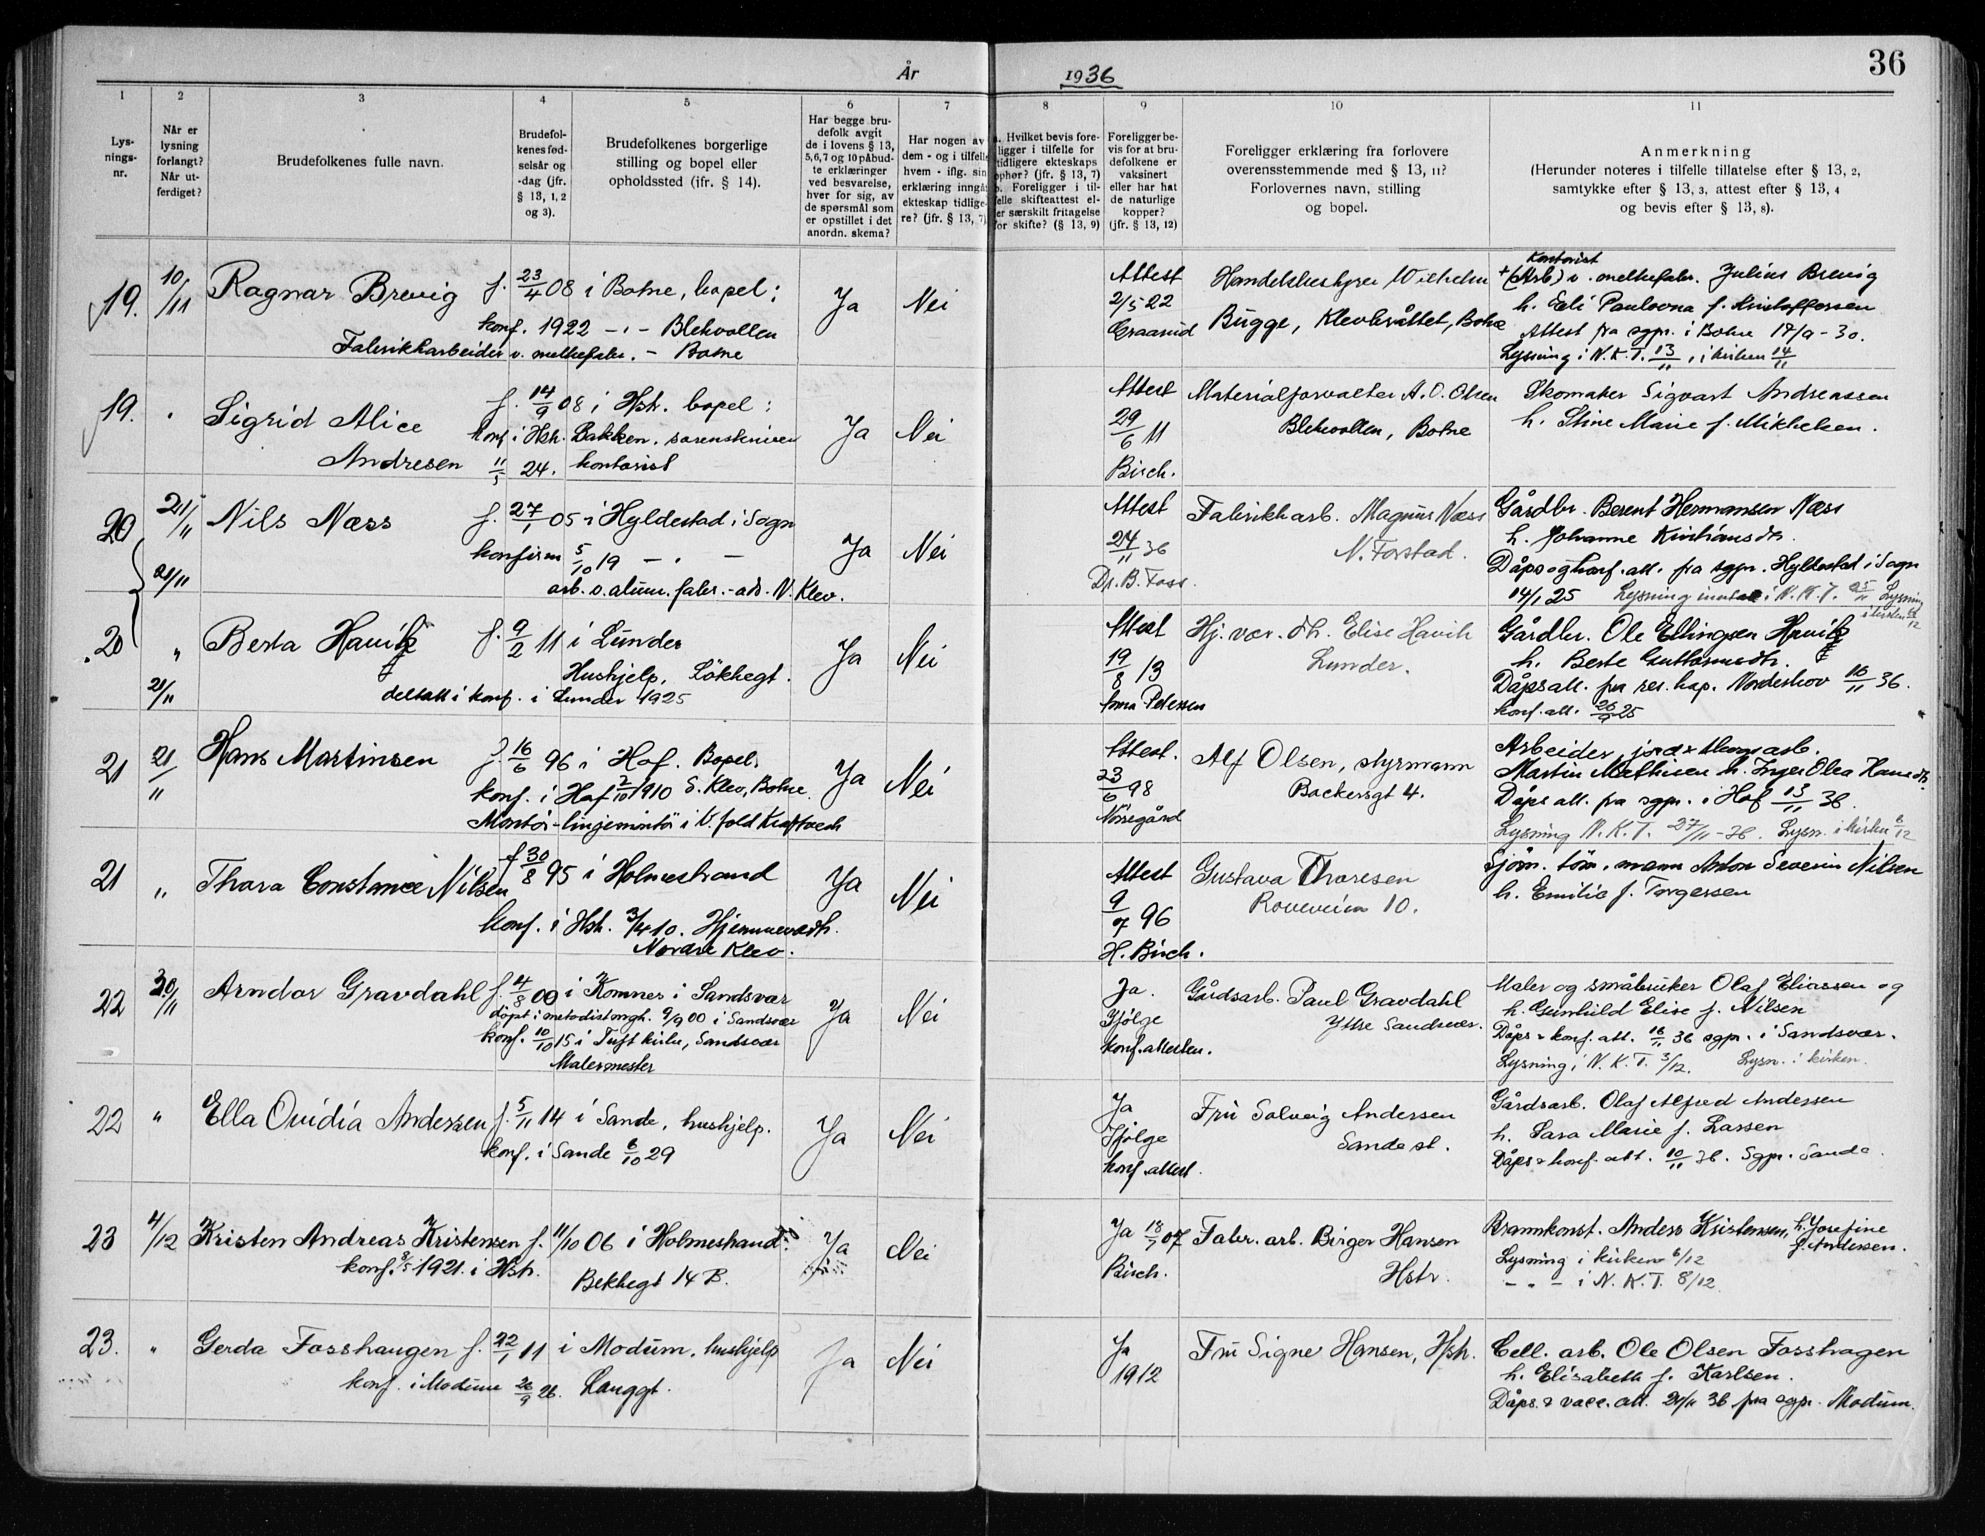 År 1936
36
1 2 3 4 5 6 7 8 9 10 11
Lys-
nings-
nr.
Når er
lysning
forlangt?
Når ut-
ferdiget?
Brudefolkenes fulle navn.
Brudefol-
kenes fød-
selsår og
-dag (jfr.
§ 13, 1, 2
og 3).
Brudefolkenes borgerlige
stilling og bopel eller
opholdssted (ifr. § 14).
Har begge bru-
defolk avgit
de i lovens § 13,
5, 6, 7 og 10 påbud-
te erklæringer
ved besvarelse,
hver for sig, av
de spørsmål som
er opstillet i det
anordn. skema?
Har nogen av
dem - og i tilfelle
hvem - iflg. sin
erklæring inngå
ekteskap tidlige-
re? (jfr. § 13, 7)
a. Hvilket bevis fore-
ligger i tilfelle for
tidligere ekteskaps
ophør? (jfr. § 13, 7)
b. Foreligger i til-
felle skifteattest el-
ler særskilt fritagelse
for skifte? (§ 13, 9)
Foreligger be-
vis for at bru-
defolkene er
vaksinert
eller har hat
de naturlige
kopper?
(jfr. § 13, 12)
Foreligger erklæring fra forlovere
overensstemmende med § 13, 11?
Forlovernes navn, stilling
og bopel.
Anmerkning
(Herunder noteres i tilfelle tillatelse efter § 13, 2,
samtykke efter § 13, 3, attest efter § 13, 4
og bevis efter § 13, 8).
19. 10/11 Ragnar Brevig f. 23/4 08 i Botne, bopel:
konf. 1922 - " - Blekvollen
Fabrikkarbeider v. melkefabr. - Botne
Ja Nei
Attest
2/5 22
Graarud
Handelsbestyrer Wilhelm
Bugge, Klevbråttet, Botne
Kontorist
+ (Arb) v. melkefabr. Julius Brevig
h. Eli Paulovna f. Kristoffersen
Attest fra sgpr. i Botne 17/9-30.
Lysning i N.K.T. 13/11, i kirken 14/11
19. " Sigrid Alice
Andresen
f. 14/9 08 i Hstr. bopel:
konf. i Hstr. Bakken, sorenskriver
11/5 24. kontorist
Ja Nei
Attest
29/6 11
Birch.
Materialforvalter A. O. Olsen
Blekvollen, Botne
Skomaker Sigvart Andreassen
h. Stine Marie f. Mikkelsen.
20 21/11 Nils Næss f. 27/1 05 i Hyldestad i Sogn
21/11
konfirm 5/10 19 - " -
arb. v. alum. fabr. - adr. N. Klev.
Ja Nei
Attest
24/11 36
Dr. B. Foss.
Fabrikkarb. Magnus Næss
N. Forstad.
Gårdbr. Berent Hermansen Næss
h. Johanne Kristiansdtr.
Dåps og konf. att. fra sgpr. Hyllestad i Sogn
14/1 25 Lysning i N.K.T. 25/11 Lysning
i kirken 6/12
20 " Berta Havik f. 9/2 11 i Lunder
21/11
Hushjelp, Løkkegt.
deltatt i konf. i Lunder 1925
Ja Nei
Attest
19/8 13
Anna Petersen
Hj. vær. dh. Elise Havik
Lunder.
Gårdbr. Ole Ellingsen Havik
h. Berte Guttormsdtr.
Dåpsatt. fra res. kap. Norderhov 16/11 36.
konf. att. 26/9 25
21 21/11 Hans Martinsen f. 16/6 96 i Hof. Bopel:
konf. i Hof 2/10 1910 S. Klev, Botne
Montør - linjemontør i V. fold Kraftverk
Ja Nei
Attest.
23/6 98
Nørregård
Alf Olsen, styrmann
Backersgt 4.
Arbeider,
Martin Mathisen h. Inger Olea Hansdtr.
Dåps att. fra sgpr. i Hof 13/11 36.
Lysning N.K.T. 27/11-36. Lysn. i kirken 6/12
21 " Thora Constance Nilsen f 30/8 95 i Holmestrand
konf. i Hstr. 3/4 10. Hjemmevædh.
Nordre Klev.
Ja Nei
Attest
9/7 96
H. Birch.
Gustava Thoresen
Roveveien 10.
Sjøm. tøm. mann Anton Severin Nilsen
h. Emilie f. Torgersen
22 30/11 Arndor Gravdahl f. 4/8 00 i Komnes i Sandsvær
døpt i metodistmgh. 9/9 00 i Sandsvær
konf. 10/10 15 i Tuft kirke, Sandsvær
Malermester
Ja Nei
Ja.
Ifølge
konf. attesten.
Gårdsarb. Paul Gravdahl
Ytre Sandsvær.
Maler og småbruker Olaf Eliassen og
h. Gunhild Elise f. Nilsen
Dåps & konf. att. 16/11 36 sgpr. i Sandsvær.
Lysning i N.K.T. 3/12. Lysn. i kirken.
22 " Ella Ovidia Andersen f. 5/11 14 i Sande, hushjelp.
konf. i Sande 6/10 29
Ja Nei
Ja
Ifølge
konf. attest.
Fru Solveig Andersen
Sande st.
Gårdsarb. Olaf Alfred Andersen
h. Sara Marie f. Larsen
Dåps & konf. att. 10/11 36. Sgpr. Sande.
23 4/12 Kristen Andreas Kristensen f. 11/10 06 i Holmestrand
konf. 8/5 1921 i Hstr. Bekkegt 14 B.
Ja Nei
Ja 18/7 07
Birch.
Fabr. arb. Birger Hansen
Hstr.
Brannkonst. Anders Kristensen, h. Josefine
f. Andersen.
Lysning i kirken 6/12
- " - i N.K.T. 8/12
23. " Gerda Fosshaugen f. 22/1 11 i Modum, hushjelp
konf. i Modum 26/9 26. Langgt.
Ja Nei
Ja
1912
Fru Signe Hansen, Hstr.
Cell. arb. Ole Olsen Fosshagen
h. Elisabeth f. Karlsen.
Dåps & vacc. att. 24/11 36 fra sgpr. Modum.